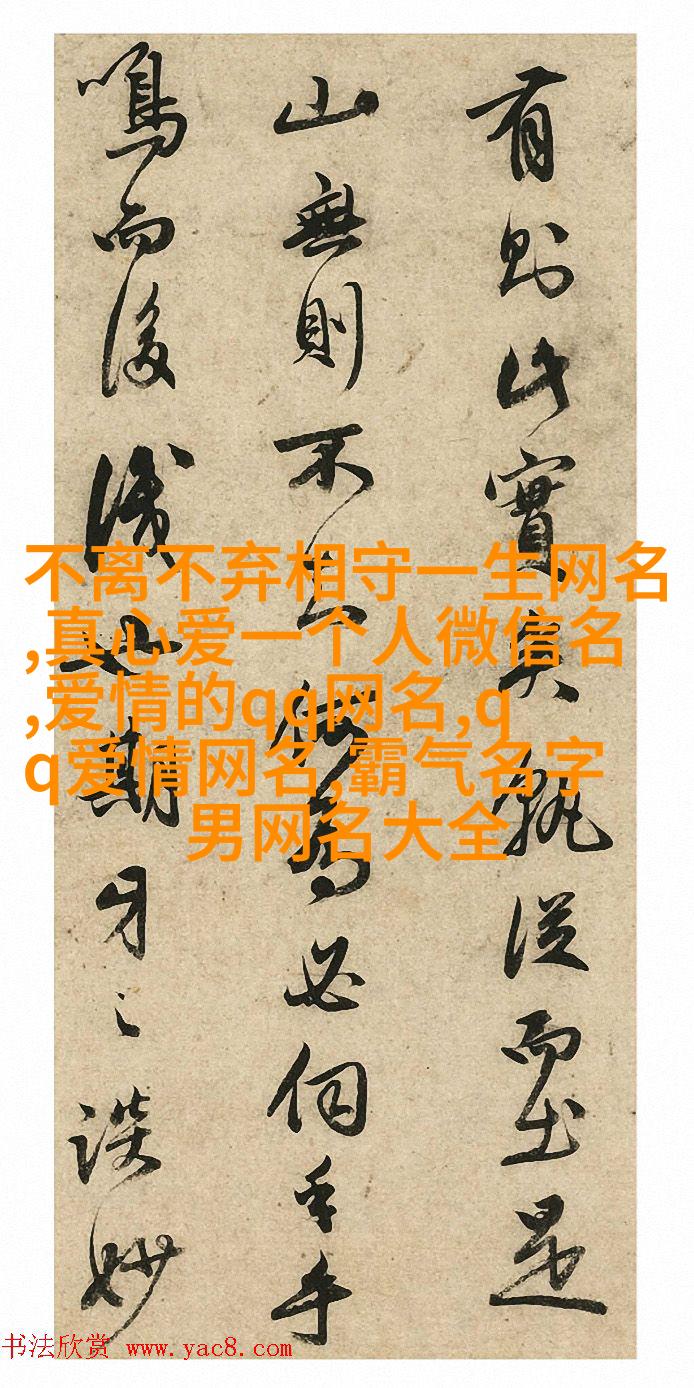 有则此實矣孰從而出是
山無則不
為必伺乎手
鳴而後
期牙之談妙
不离不弃相守一生网名
,真心爱一个人微信名
,爱情的qq网名,q
q爱情网名,霸气名字
男网名大全
书法欣赏 www.yac8.com